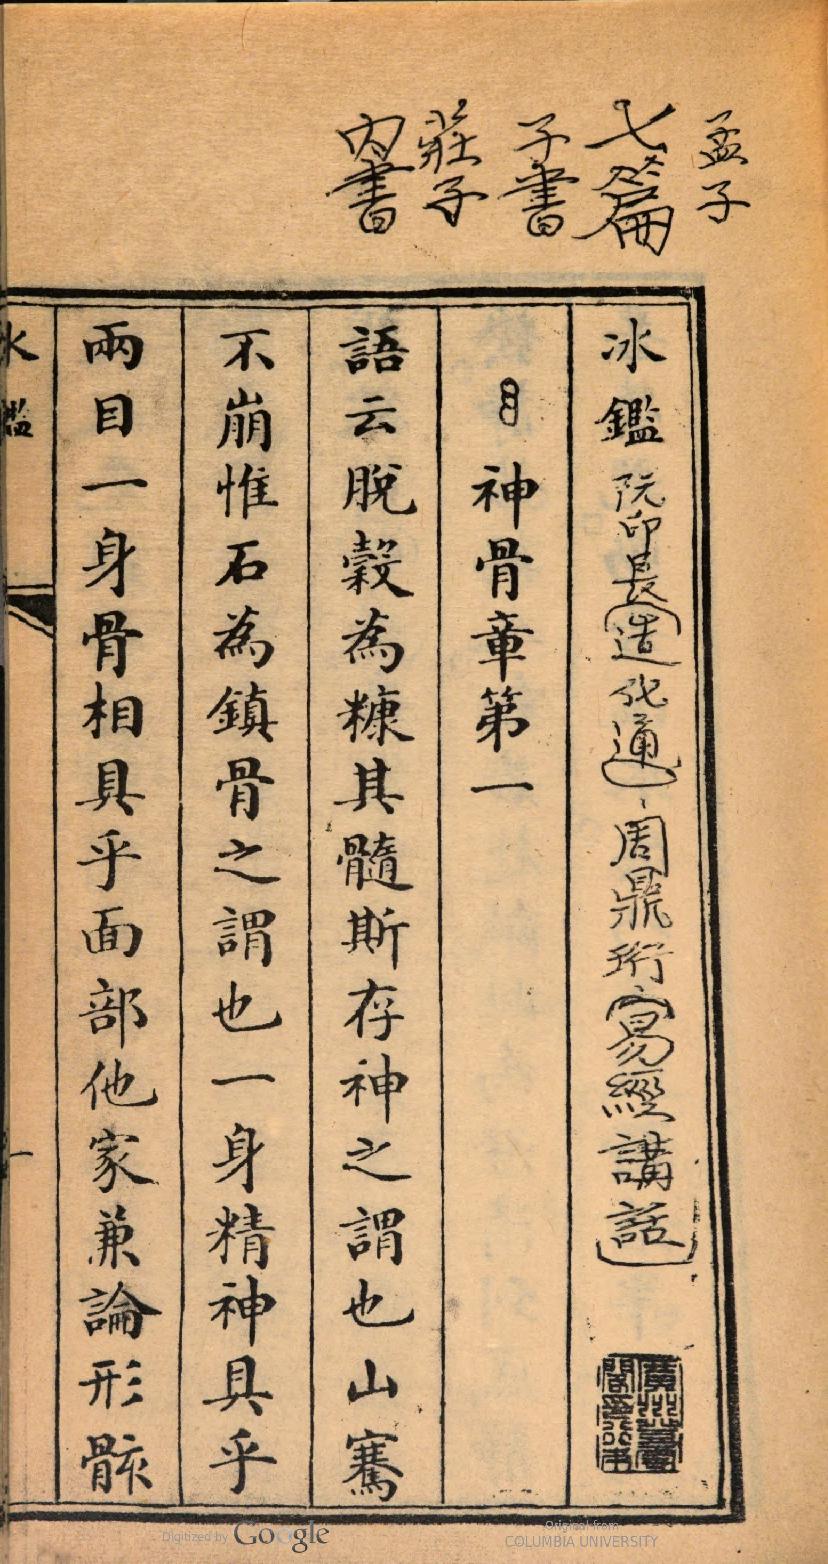 孟子
七篇
子書
莊子
內書
冰鑑 阮印長（造化通）周鼎珩（易經講話）
神骨章第一
語云脫穀為糠其髓斯存神之謂也山騫
不崩惟石為鎮骨之謂也一身精神具乎
兩目一身骨相具乎面部他家兼論形骸
冰鑑
一
Digitized by Google
Original from
COLUMBIA UNIVERSITY